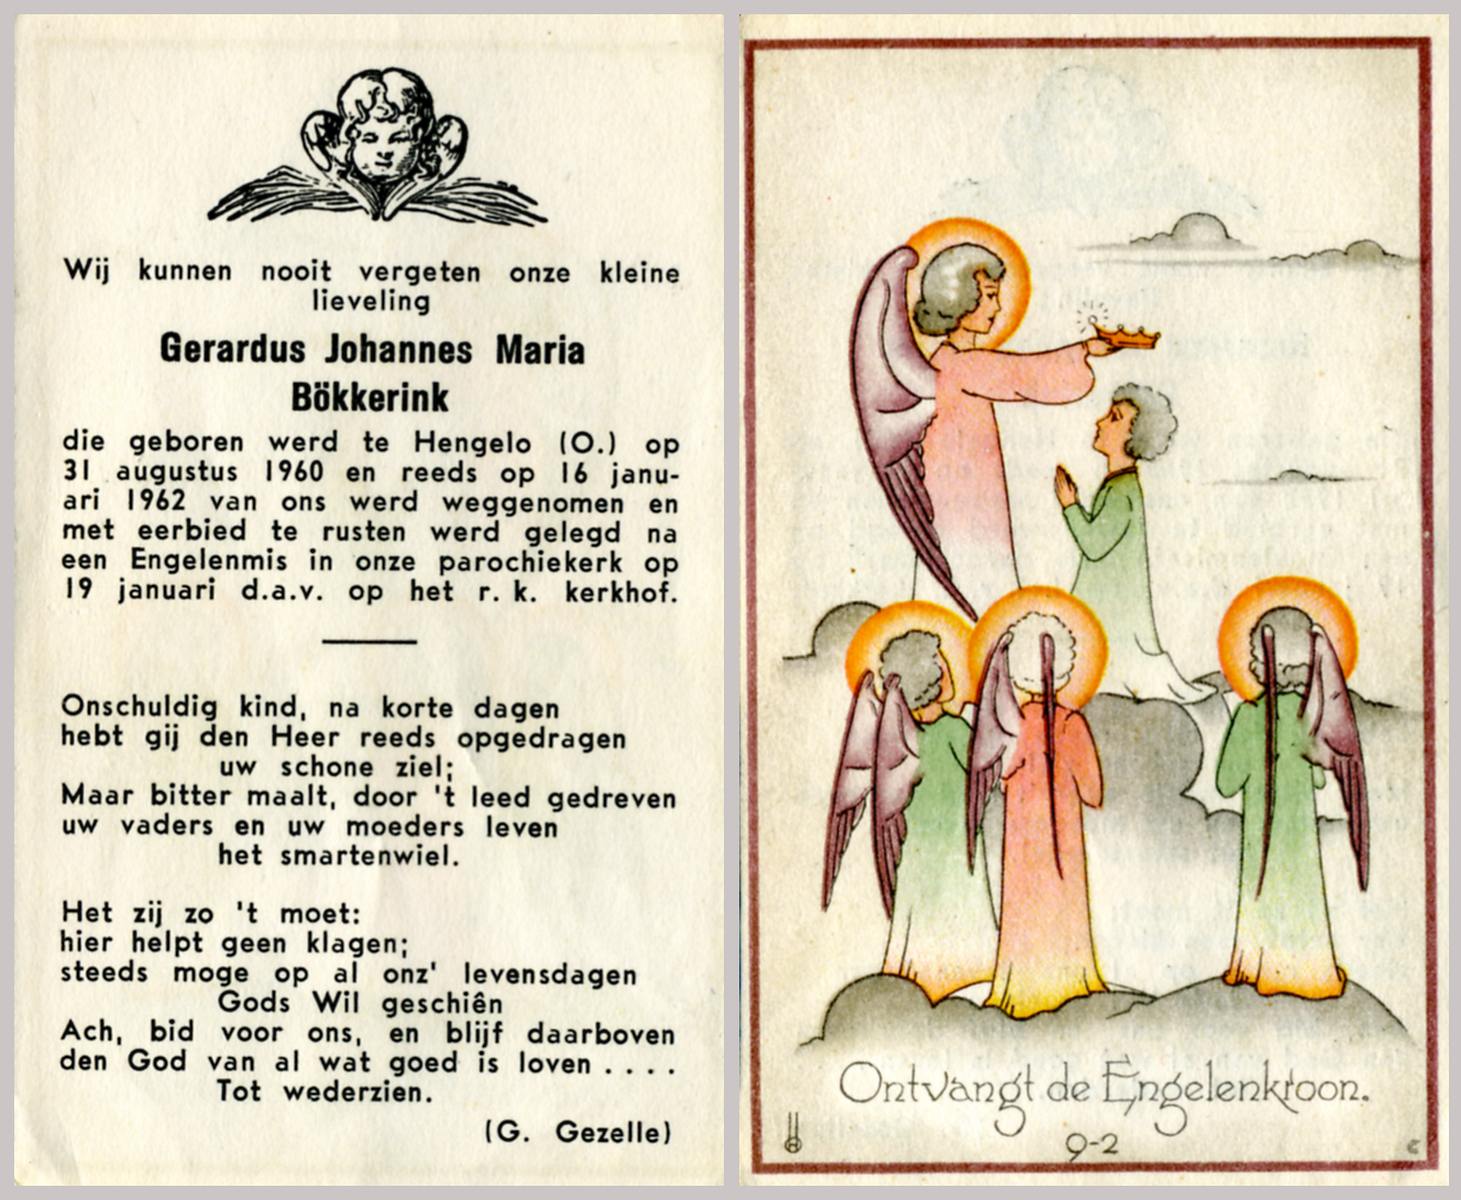 Wij kunnen nooit vergeten onze kleine
lieveling
Gerardus Johannes Maria
Bökkerink
die geboren werd te Hengelo (O.) op
31 augustus 1960 en reeds op 16 janu-
ari 1962 van ons werd weggenomen en
met eerbied te rusten werd gelegd na
een Engelenmis in onze parochiekerk op
19 januari d.a.v. op het r. k. kerkhof.
Onschuldig kind, na korte dagen
hebt gij den Heer reeds opgedragen
uw schone ziel;
Maar bitter maalt, door 't leed gedreven
uw vaders en uw moeders leven
het smartenwiel.
Het zij zo 't moet:
hier helpt geen klagen;
steeds moge op al onz' levensdagen
Gods Wil geschiên
Ach, bid voor ons, en blijf daarboven
den God van al wat goed is loven . . . .
Tot wederzien.
(G. Gezelle)
Ontvangt de Engelenkroon.
9-2